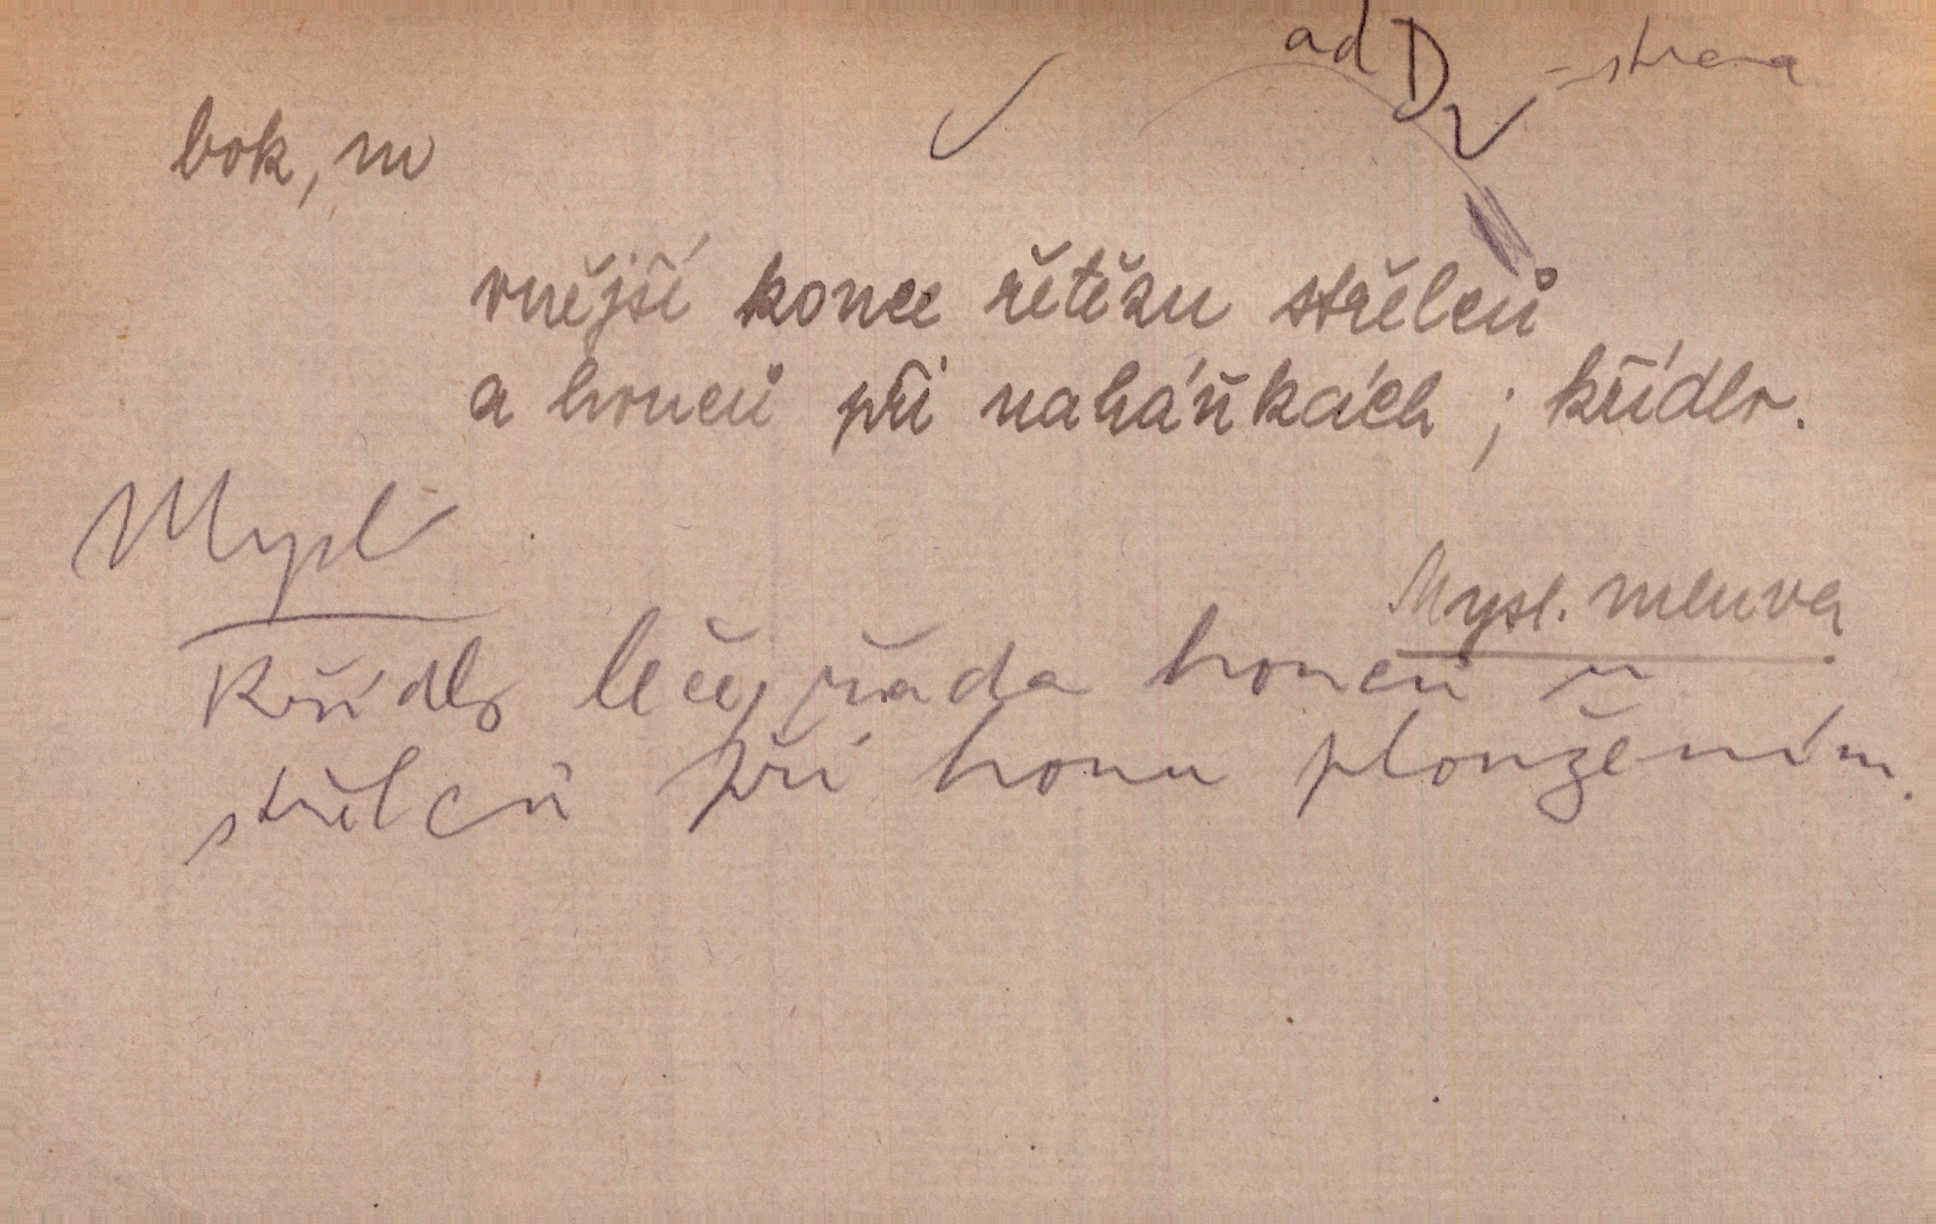 ad D - strana
bok, m
vnější konec řetězu střelců
a honců při naháňkách; křídlo.
Mysl
Mysl. mluva
Křídlo leče, řada honců a
střelců při honu ploužením.